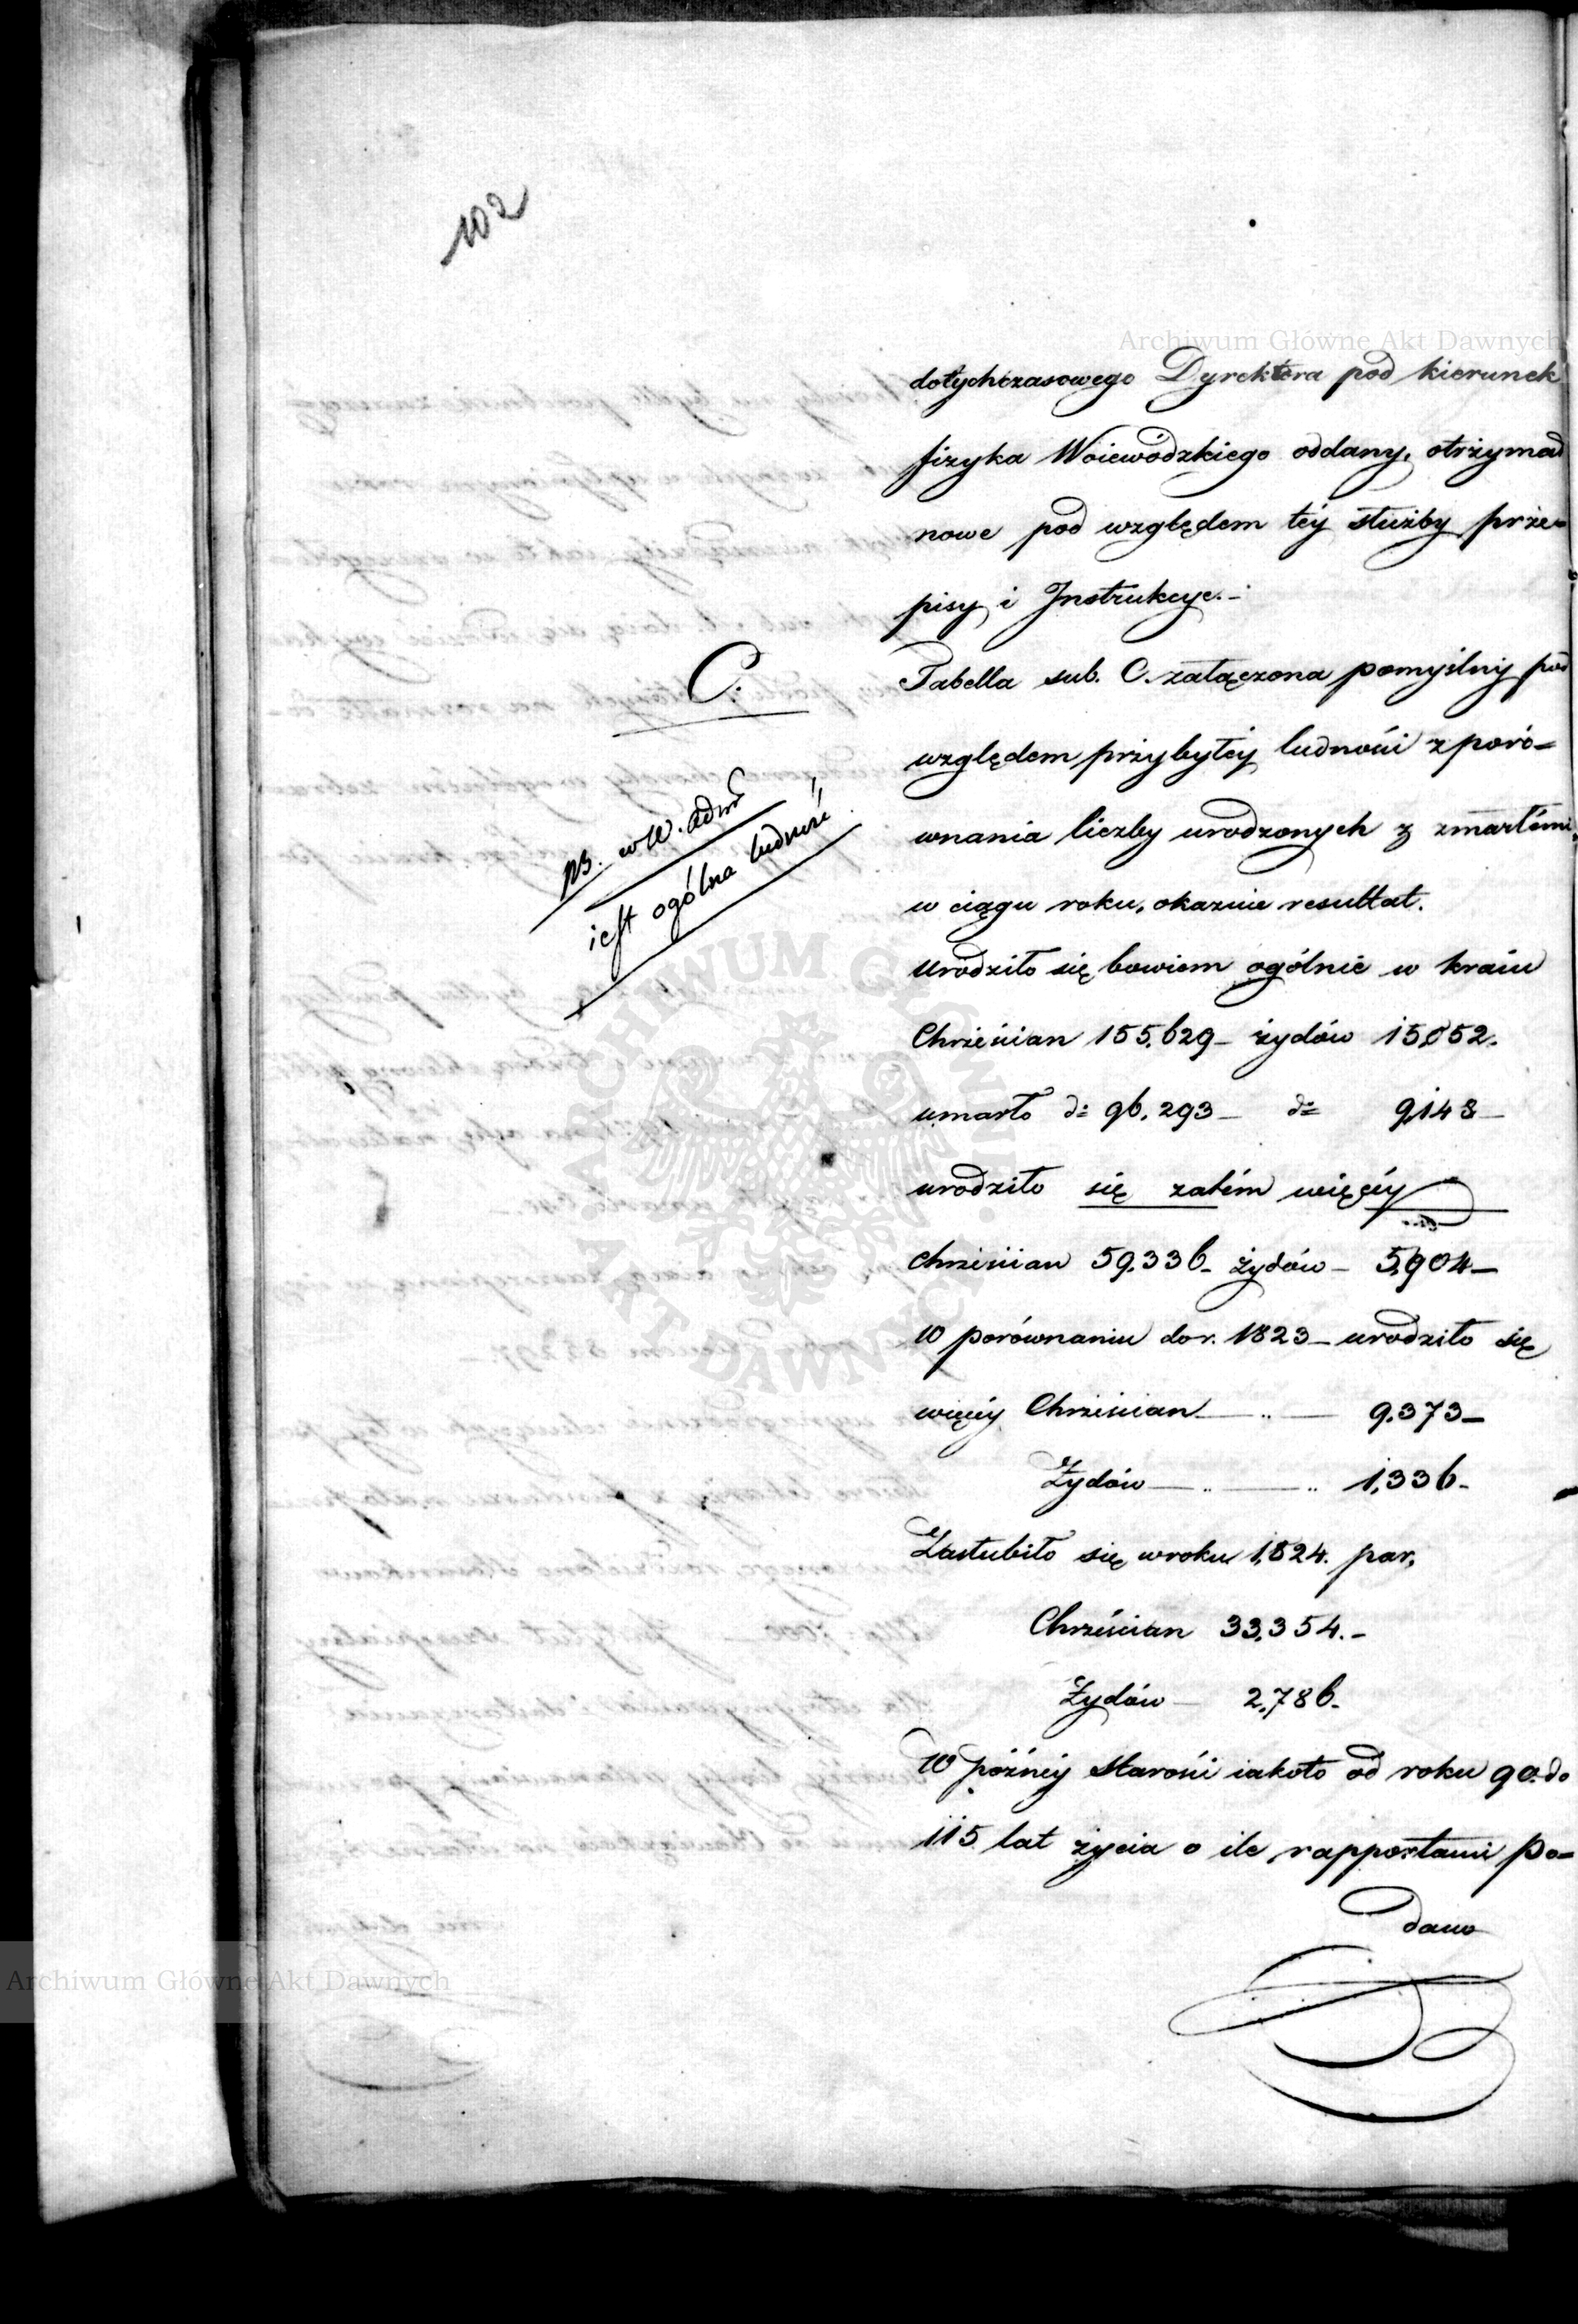 102
Archiwum Główne Akt Dawnych
dotychczasowego Dyrektora pod kierunek
fizyka Woiewódzkiego oddany, otrzymał
nowe pod względem téy służby prze-
pisy i Instrukcye.-
C.
Tabella sub. C. załączona pomyślny pod
względem przybyłéy ludności z poró-
wnania liczby urodzonych z zmarłémi
w ciągu roku, okazuie resultat.
NB. w W. adm
iest ogólna ludność
urodziło się bowiem ogólnie w kraiu
Chrześcian 155,629 - żydów 15,052.
umarło d: 96,293 - d: 9,148 -
urodziło się zatém więcéy
chrześcian 59,336 - żydów - 5,904 -
W porównaniu do r. 1823 - urodziło się
więcéy Chrześcian - „ - 9,373 -
Żydów - „ - „ 1,336 -
Zaślubiło się w roku 1,824. par,
Chrześcian 33,354. -
Żydów - 2,786 -
W późnéy starości iakoto od roku 90. do
115 lat życia o ile rapportami po-
dano
ARCHIWUM GŁÓWNE AKT DAWNYCH
Archiwum Główne Akt Dawnych